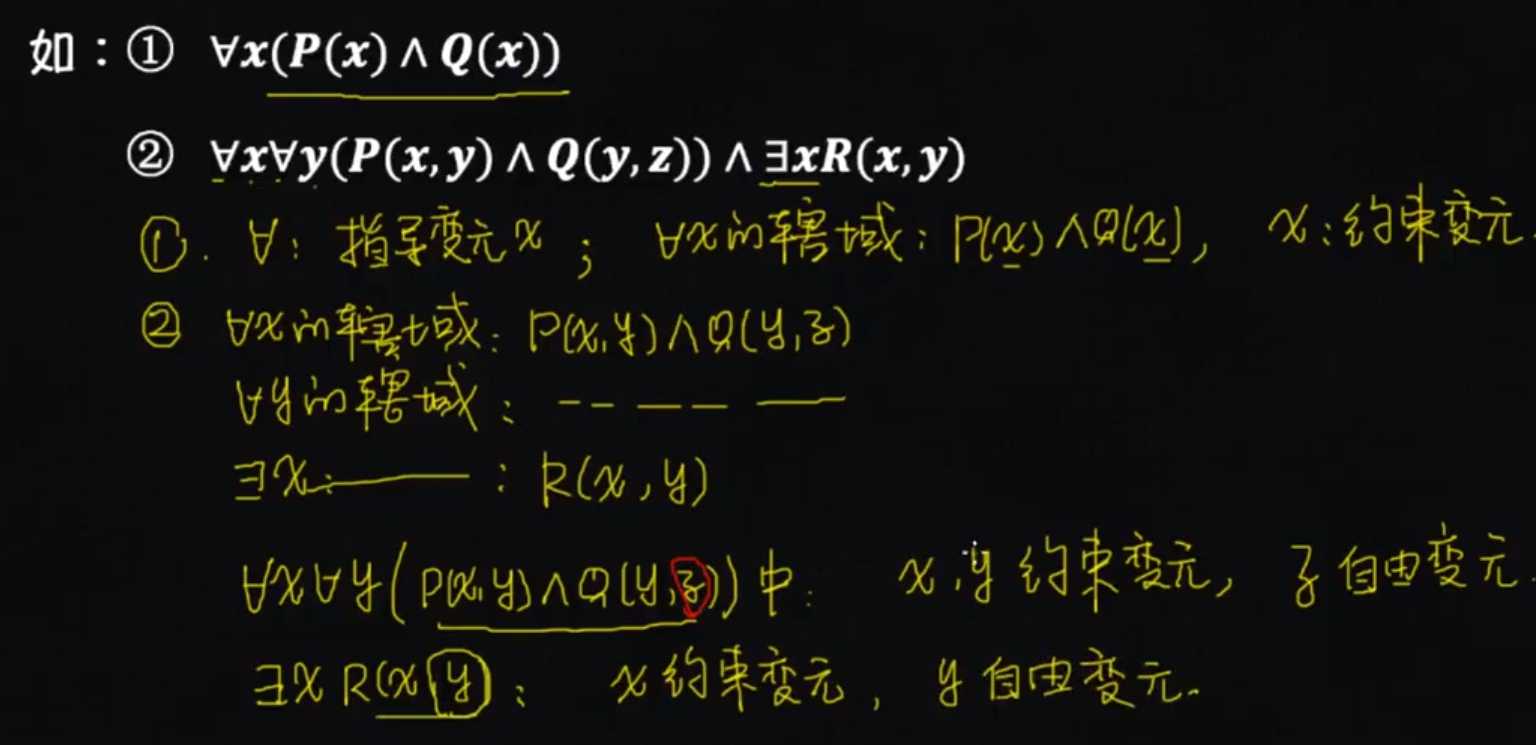 如：① ∀x(P(x)∧Q(x))
② ∀x∀y(P(x,y)∧Q(y,z))∧∃xR(x,y)
①. ∀：指导变元x； ∀x的辖域：P(x)∧Q(x)， x：约束变元.
② ∀x的辖域：P(x,y)∧Q(y,z)
∀y的辖域：
∃x：R(x,y)
∀x∀y(P(x,y)∧Q(y,z))中： x,y约束变元， z自由变元.
∃xR(x,y)： x约束变元， y自由变元.